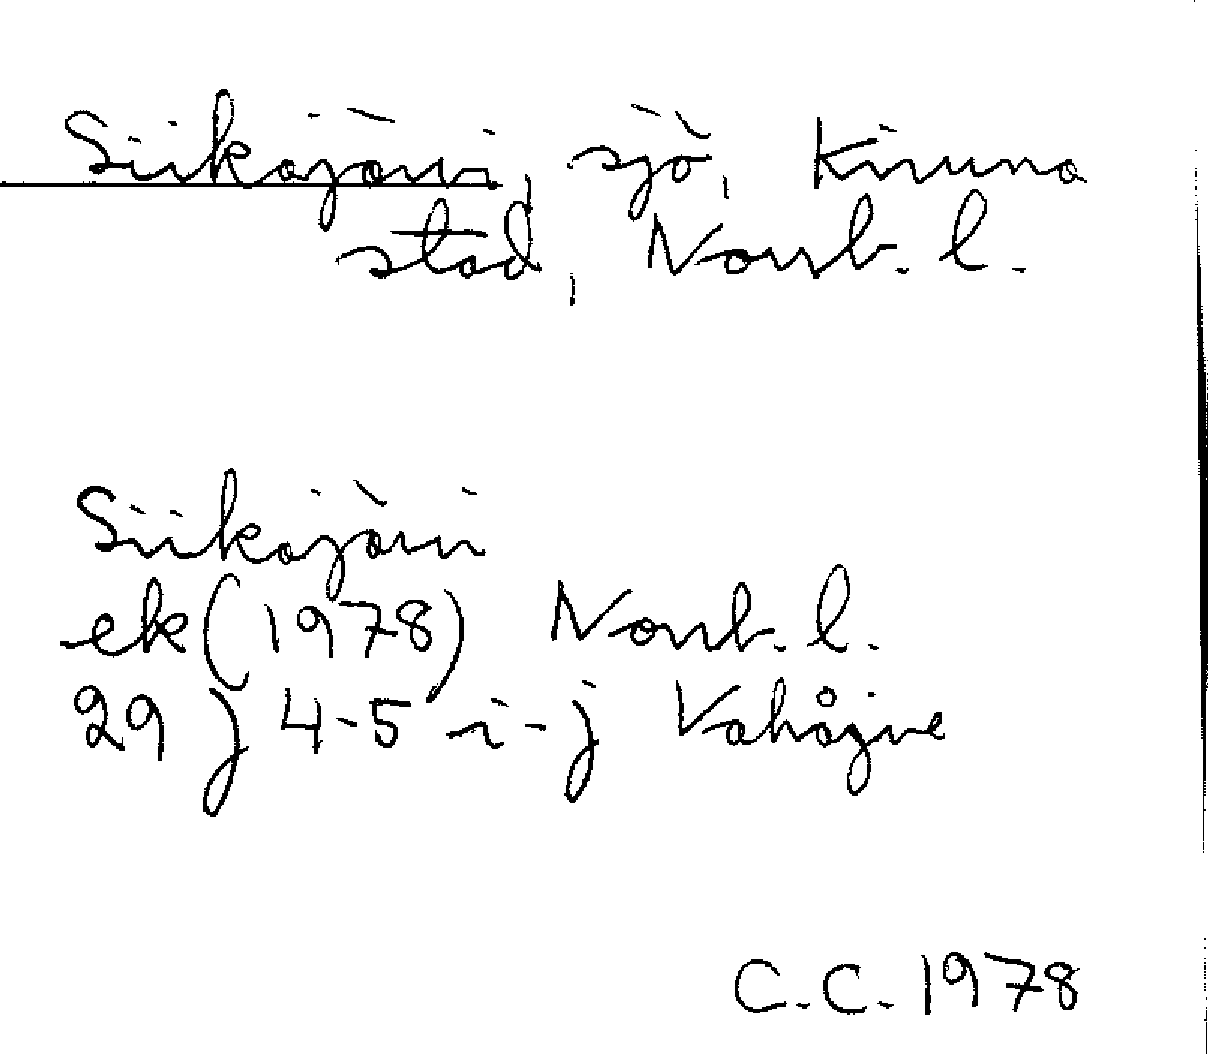 Siikajärvi, sjö, Kiruna
stad, Norrb. l.
Siikajärvi
ek (1978) Norrb. l.
29 j 4-5 i-j Vahåive
C.C. 1978